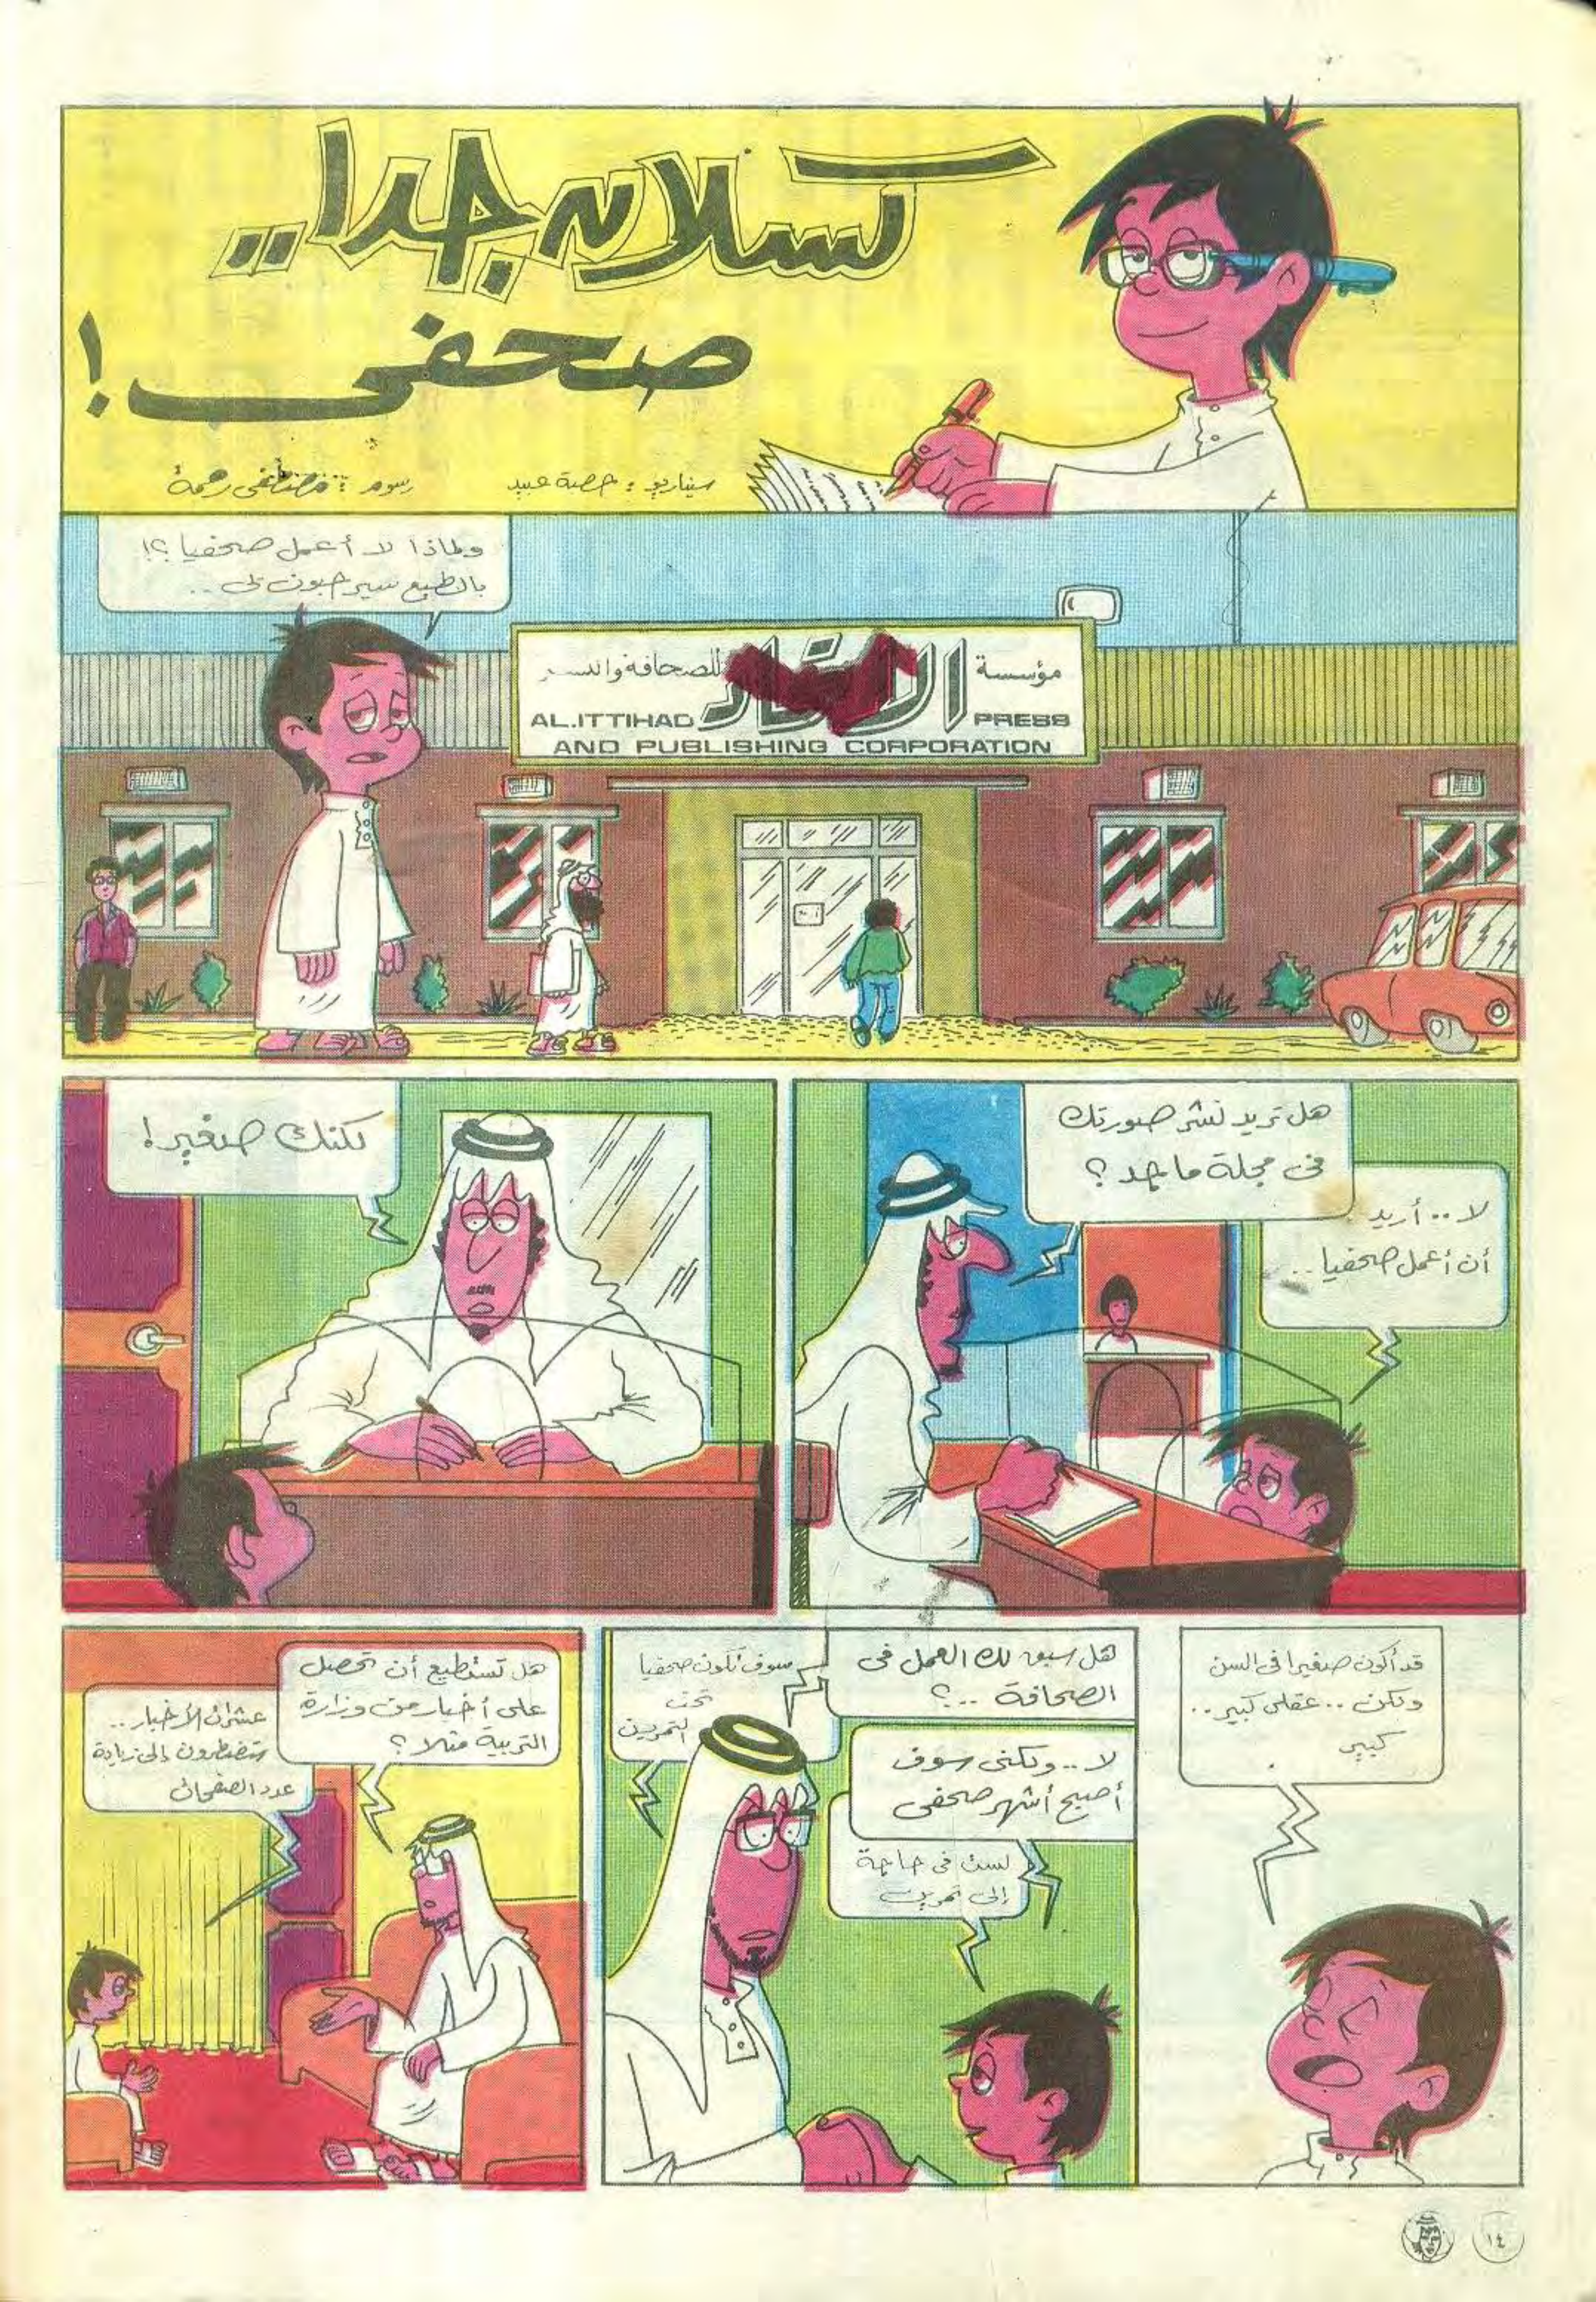 كسلان جدا..
صحفى !
سيناريو : حصة عبيد
رسوم : مصطفى رحمة
ولماذا لا أعمل صحفيا ؟!
بالطبع سيرحبون بى ..
مؤسسة الاتحاد للصحافة والنشر
AL.ITTIHAD PRESS
AND PUBLISHING CORPORATION
هل تريد نشر صورتك
فى مجلة ماجد ؟
لا .. أريد
أن أعمل صحفيا ..
لكنك صغير !
قد أكون صغيرا فى السن
ولكن .. عقلى كبير ..
كبير
هل سبق لك العمل فى
الصحافة .. ؟
لا .. ولكنى سوف
أصبح أشهر صحفى
سوف تكون صحفيا
تحت
التمرين
لست فى حاجة
إلى تمرين
هل تستطيع أن تحصل
على أخبار من وزارة
التربية مثلا ؟
عشرات الأخبار ..
ستضطرون إلى زيادة
عدد الصفحات
١٤